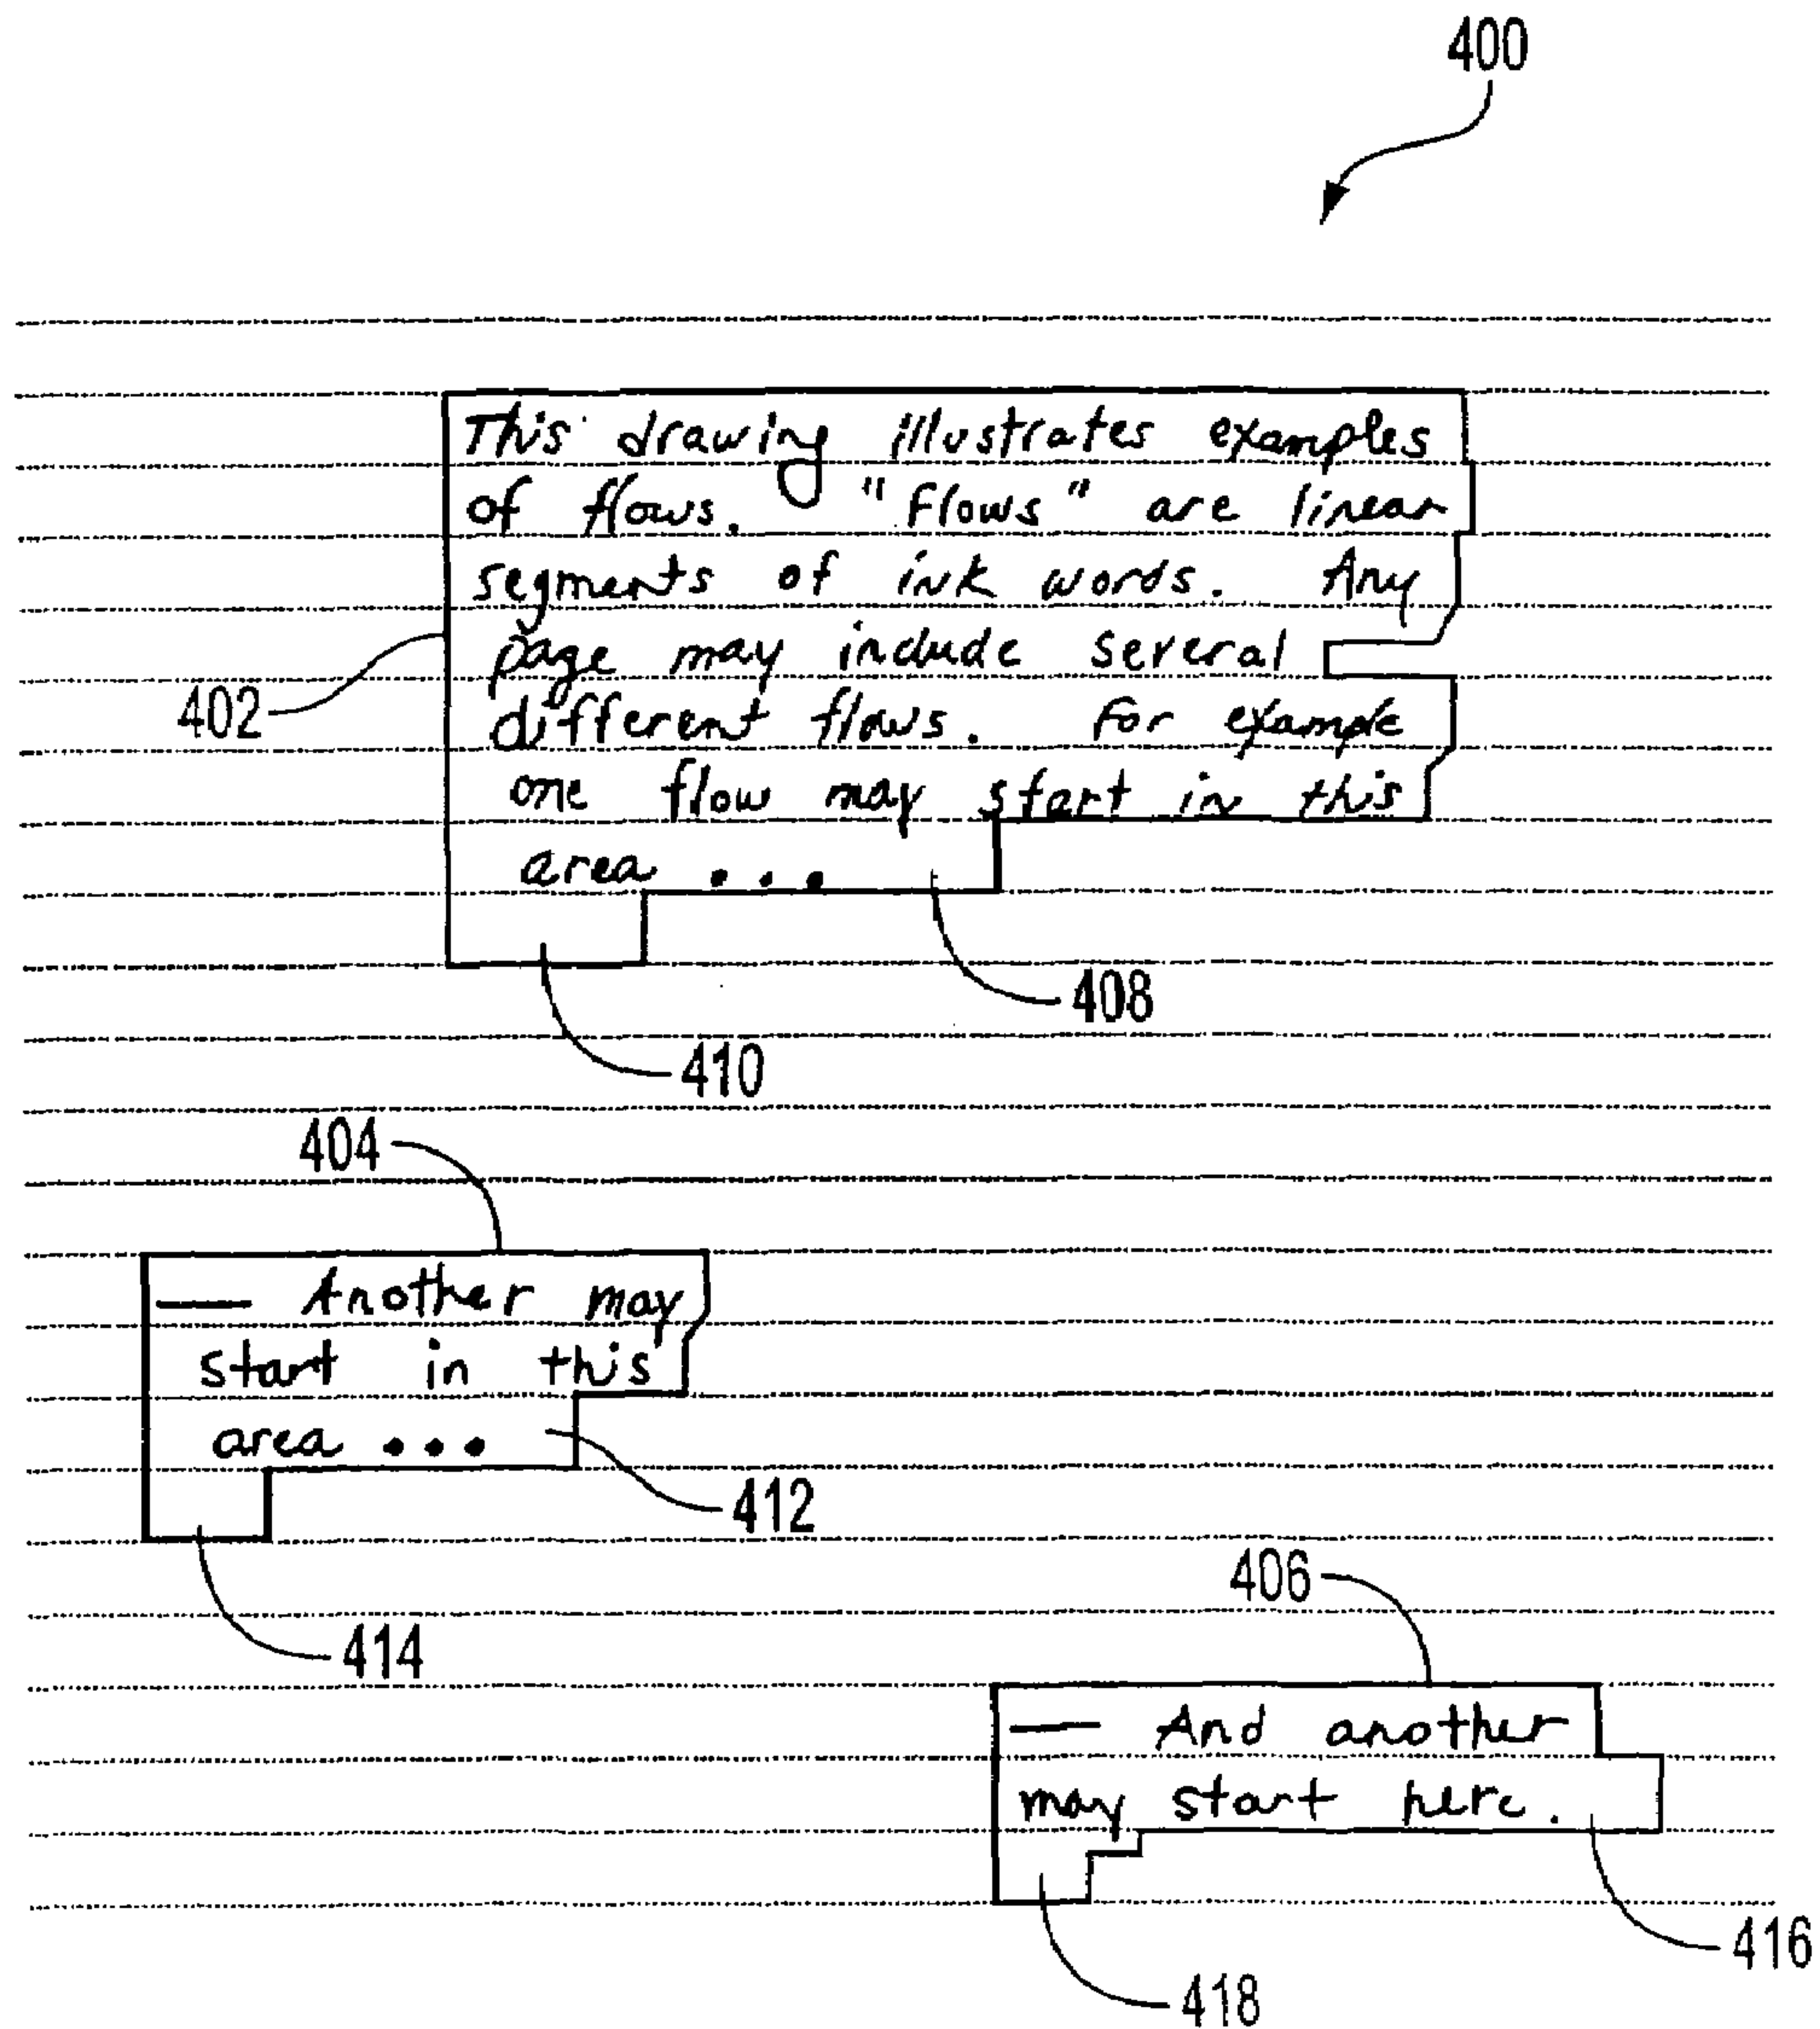 400
This drawing illustrates examples
of flows. "Flows" are linear
segments of ink words. Any
page may include several
402
different flows. For example
one flow may start in this
area ...
408
410
404
— Another may
start in this
area ...
412
406
414
— And another
may start here.
416
418